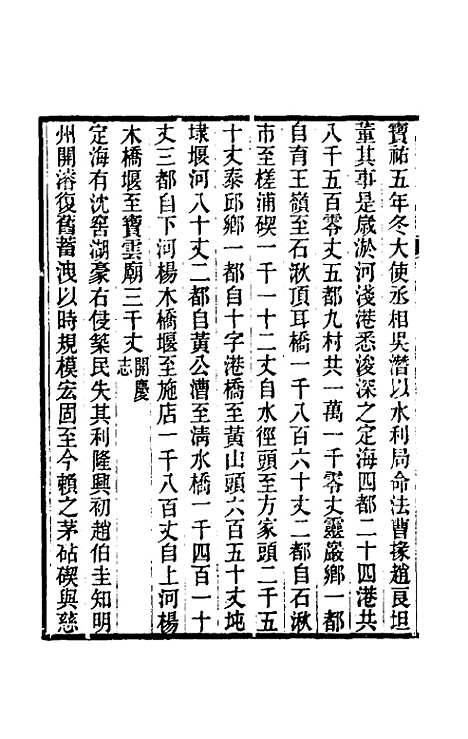 寶祐五年冬大使丞相吳潛以水利局命法曹掾趙良坦
董其事是歲淤河淺港悉浚深之定海四都二十四港共
八千五百零丈五都九村共一萬一千零丈靈巖鄉一都
自育王嶺至石湫頂耳橋一千八百六十丈二都自石湫
市至槎浦碶一千一十二丈自水徑頭至方家頭二千五
十丈泰邱鄉一都自十字港橋至黃山頭六百五十丈坉
埭堰河八十丈二都自黃公漕至清水橋一千四百一十
丈三都自下河楊木橋堰至施店一千八百丈自上河楊
木橋堰至寶雲廟三千丈開慶志
定海有沈窖湖豪右侵築民失其利隆興初趙伯圭知明
州開濬復舊蓄洩以時規模宏固至今賴之茅砧碶與慈